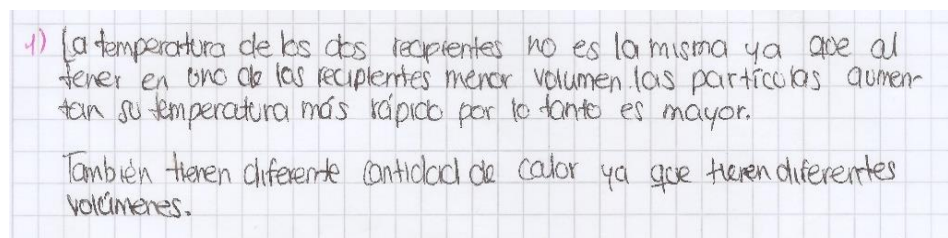 1) La temperatura de los dos recipientes no es la misma ya que al
tener en uno de los recipientes menor volumen las partículas aumen-
tan su temperatura más rápido por lo tanto es mayor.
También tienen diferente cantidad de calor ya que tienen diferentes
volúmenes.